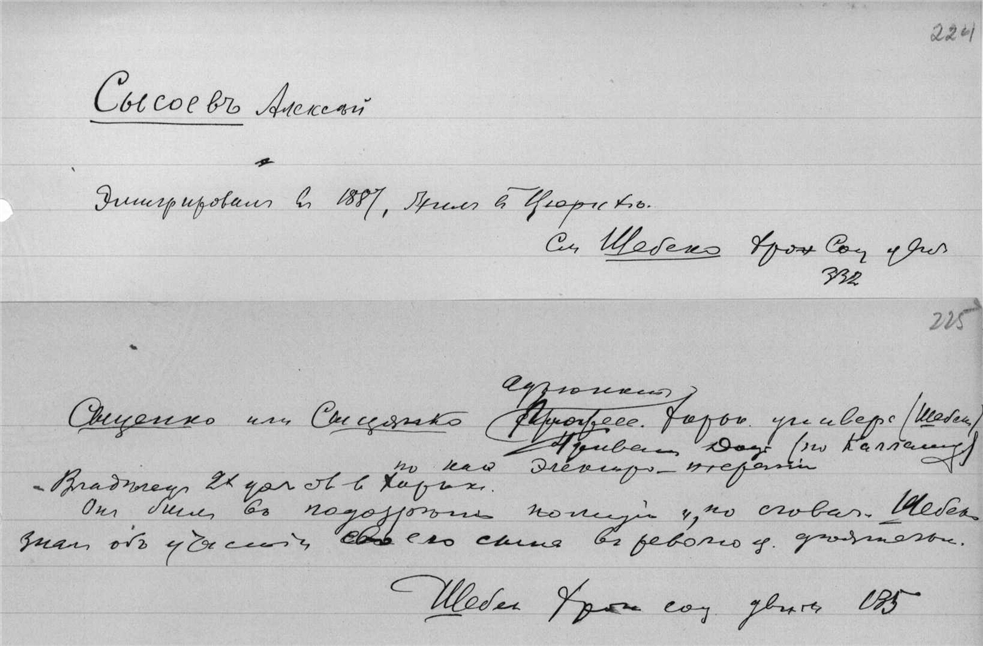 224
Сысоевъ Алексѣй
Эмигрировалъ въ 1887, жилъ въ Цюрихѣ.
См Шебеко Хрон Соц движ
332
225
адъюнктъ
Сыценко или Сыцянко Професс. Харьк. универс (Шебеко)
Приват Доц (по Каллашу)
по каф электро-терапіи
Владѣлецъ 2х домовъ въ Харьк.
Онъ былъ въ подозрѣніи полиціи и, по словам Шебеко
зналъ объ участіи его сына въ революц. дѣятельн.
Шебек Хрон соц движ 185